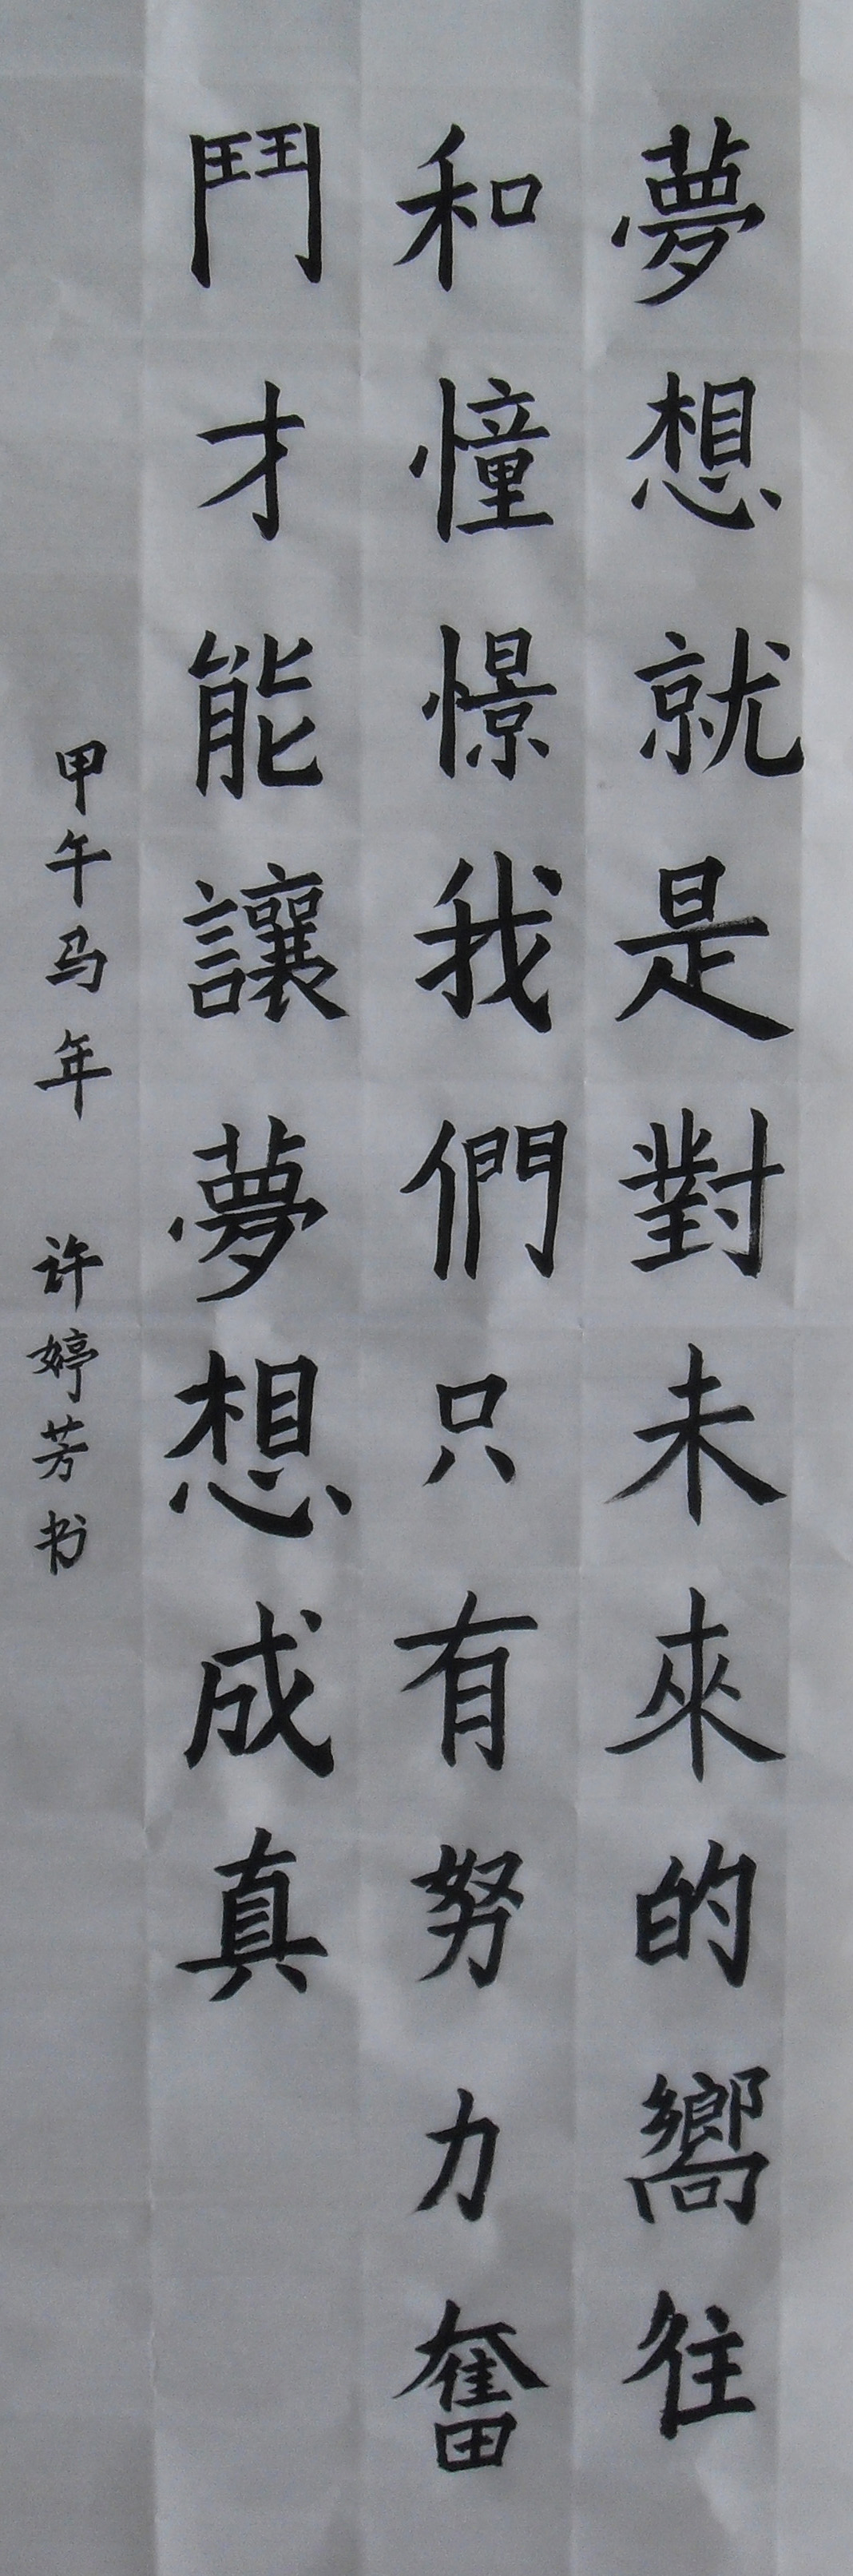 夢想就是對未來的嚮往
和憧憬我們只有努力奮
鬥才能讓夢想成真
甲午马年 许婷芳书